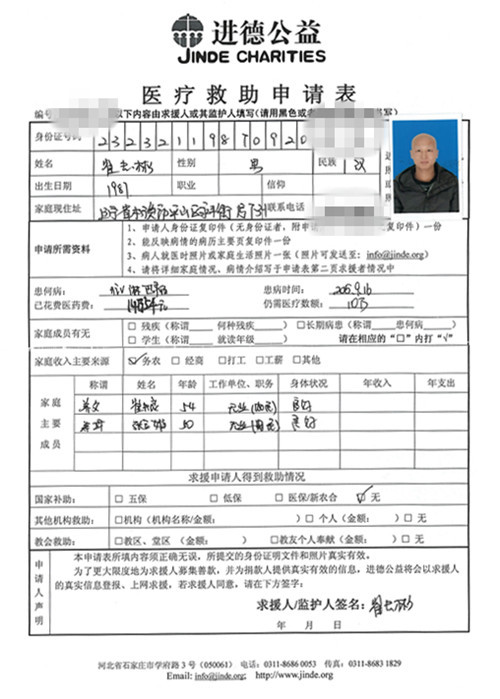 进德公益
JINDE CHARITIES
医疗救助申请表
编号 以下内容由求援人或其监护人填写(请用黑色或 写)
身份证号码 2 3 2 3 2 1 1 9 8 7 0 9 2 0
姓名 性别 男 民族 汉
出生日期 1987 职业 信仰
家庭现住址 联系电话
申请所需资料
1、申请人身份证复印件(无身份证者,附申请
2、能反映病情的病历主要页复印件一份
3、病人就医时照片或家庭生活照片一张(照片可发送至:info@jinde.org)
4、请将详细家庭情况、病情介绍写于申请表第二页求援者情况中
患何病: 淋巴瘤 患病时间:
已花费医药费: 仍需医疗数额: 10万
家庭成员有无 □残疾(称谓____何种残疾____) □长期病患(称谓____患何病____)
□学生(称谓____就读年级____) 请在相应的“□”内打“√”
家庭收入主要来源 ☑务农 □经商 □打工 □工薪 □其他
家庭主要成员
称谓 姓名 年龄 工作单位、职务 身体状况 年收入 年支出
54 良好
50 良好
求援申请人得到救助情况
国家补助: □五保 □低保 □医保/新农合 ☑无
其他机构救助: □机构(机构名称/金额: ) □个人(金额: ) □无
教会救助: □教区、堂区(金额: ) □教友个人奉献(金额: ) □无
申请人声明
本申请表所填内容须正确无误,所提交的身份证明文件和照片真实有效。
为了更大限度地为求援人募集善款,并为捐款人提供真实有效的信息,进德公益将会以求援人
的真实信息登报、上网求援,若求援人同意,请在下方签字:
求援人/监护人签名:
年 月 日
河北省石家庄市学府路3号(050061) 电话:0311-8686 0053 传真:0311-8683 1829
Email: info@jinde.org http://www.jinde.org